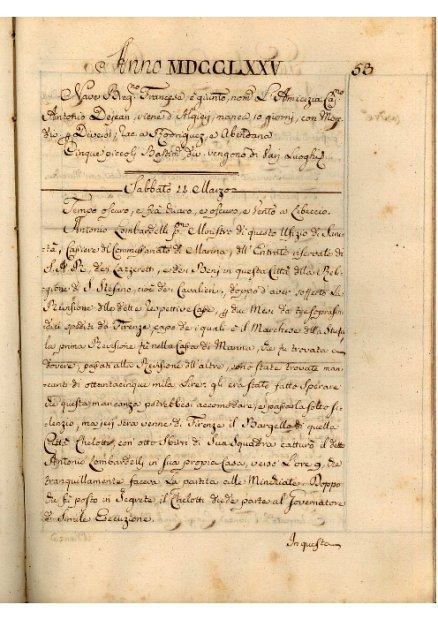 Anno MDCCLXXV 53
Nave Brig.no Francese, è giunto, nom.o L'Amicizia Cap.no
Antonio Dejean, viene d'Algieri, manca 10 giorni, con
Diversi, e Rodriquez, e Abendana
Cinque piccoli Bastim. div. vengono di vari Luoghi
Sabbato 11 Marzo
Tempo oscuro, e, e oscuro, e vento a Libeccio.
Antonio Lombardelli p.mo Ministro di questo Ufizio di
Cassiere di Commissariato di Marina, dell'Entrate riservate di
S.A.R. dei Lazzeretti, e dei Beni in questa Città della
gione di S. Stefano, cioè dei Cavalieri, doppo d'aver sofferto la
Revisione delle dette respettive Casse, p due Mesi da tre
spediti da Firenze capo de i quali è il Marchese della Stufa
la prima Revisione fù nella Cassa di Marina, che fu trovata a
dovere, passati alla Revisione dell'altre, sono state trovate man-
canti di ottantacinque mila Lire, gli era stato fatto sperare
che questa mancanza potrebbesi accomodare, e passarla sotto si-
lenzio, ma jeri sera venne di Firenze il Bargello di quella
Città Chelotti, con otto Sbirri di Sua Squadra catturò il detto
Antonio Lombardelli, in sua propria Casa, verso l'ore 9, che
tranquillamente faceva la partita alle Minchiate. Doppo
che fu posto in Segrete il Chelotti diede parte al Governatore
di simile Esecuzione.
In questa